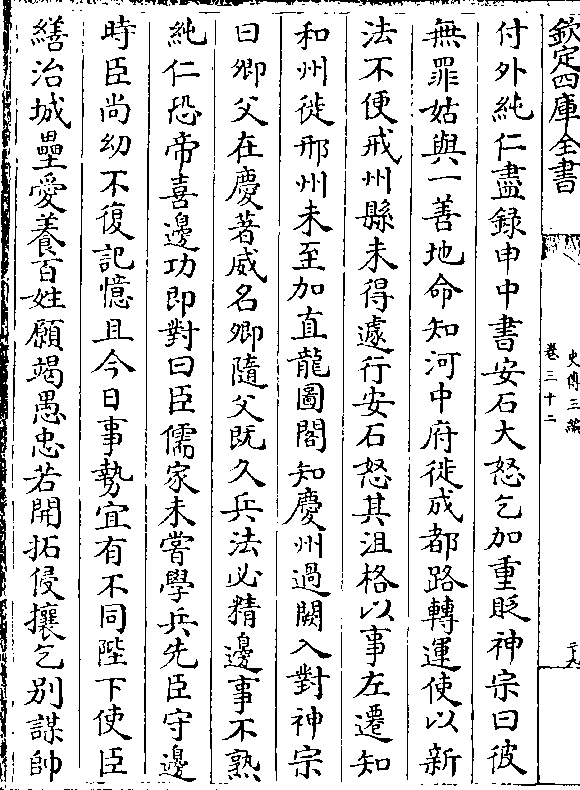 欽定四庫全書
史傳三編
卷三十二
付外純仁盡錄申中書安石大怒乞加重貶神宗曰彼
無罪姑與一善地命知河中府徙成都路轉運使以新
法不便戒州縣未得遽行安石怒其沮格以事左遷知
和州徙邢州未至加直龍圖閣知慶州過闕入對神宗
曰卿父在慶著威名卿隨父既久兵法必精邊事不熟
純仁恐帝喜邊功即對曰臣儒家未嘗學兵先臣守邊
時臣尚幼不復記憶且今日事勢宜有不同陛下使臣
繕治城壘愛養百姓願竭愚忠若開拓侵攘乞别謀帥